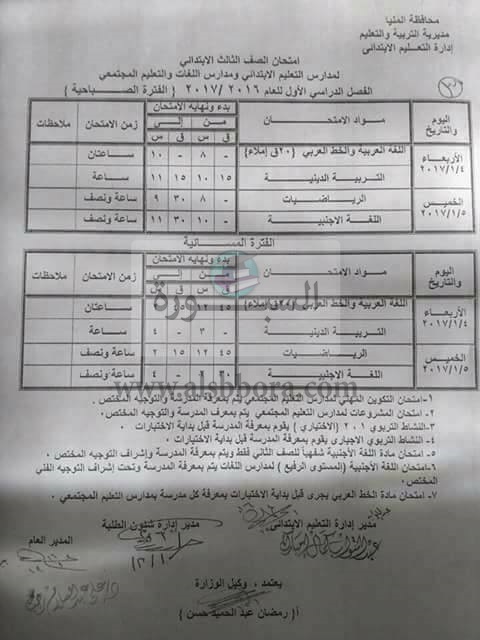 محافظة المنيا
مديرية التربية والتعليم
إدارة التعليم الابتدائى
امتحان الصف الثالث الابتدائي
لمدارس التعليم الابتدائي ومدارس اللغات والتعليم المجتمعي
الفصل الدراسي الأول للعام ٢٠١٦ /٢٠١٧ ( الفترة الصباحية )
اليوم والتاريخ مواد الامتحان بدء ونهايه الامتحان زمن الامتحان ملاحظات
من إلى
ق س ق س
الأربعاء ٢٠١٧/١/٤ اللغة العربية والخط العربي (٢٠ق إملاء) - ٨ - ١٠ ساعتان
التربية الدينية ١٥ ١٠ ١٥ ١١ ساعة
الخميس ٢٠١٧/١/٥ الرياضيات - ٨ ٣٠ ٩ ساعة ونصف
اللغة الاجنبية - ١٠ ٣٠ ١١ ساعة ونصف
الفترة المسائية
اليوم والتاريخ مواد الامتحان بدء ونهايه الامتحان زمن الامتحان ملاحظات
من إلى
الأربعاء ٢٠١٧/١/٤ اللغة العربية والخط العربي (٢٠ق إملاء) ٤٥ ١٢ ساعتان
التربية الدينية - ٣ - ٤ ساعة
الخميس ٢٠١٧/١/٥ الرياضيات ٤٥ ١٢ ١٥ ٢ ساعة ونصف
اللغة الاجنبية - ٤ ساعة ونصف
السبورة
www.alsbbora.com
١- امتحان التكوين المهني لمدارس التعليم المجتمعي يتم بمعرفة المدرسة والتوجيه المختص .
٢- امتحان المشروعات لمدارس التعليم المجتمعي يتم بمعرف المدرسة والتوجيه المختص .
٣- النشاط التربوي ١ ، ٢ (الاختياري ) يقوم بمعرفة المدرسة قبل بداية الاختبارات
٤- النشاط التربوي الاجباري يقوم بمعرفة المدرسة قبل بداية الاختبارات .
٥- امتحان مادة اللغة الأجنبية شفهياً للصف الثاني فقط ويتم بمعرفة المدرسة وإشراف التوجيه المختص .
٦- امتحان اللغة الأجنبية (المستوى الرفيع ) لمدارس اللغات يتم بمعرفة المدرسة وتحت إشراف التوجيه الفني المختص .
٧- امتحان مادة الخط العربي يجرى قبل بداية الاختبارات بمعرفة كل مدرسة بمدارس التعليم المجتمعي .
مدير إدارة التعليم الابتدائى مدير إدارة شئون الطلبة المدير العام
يعتمد ، وكيل الوزارة
أ( رمضان عبد الحميد حسن )